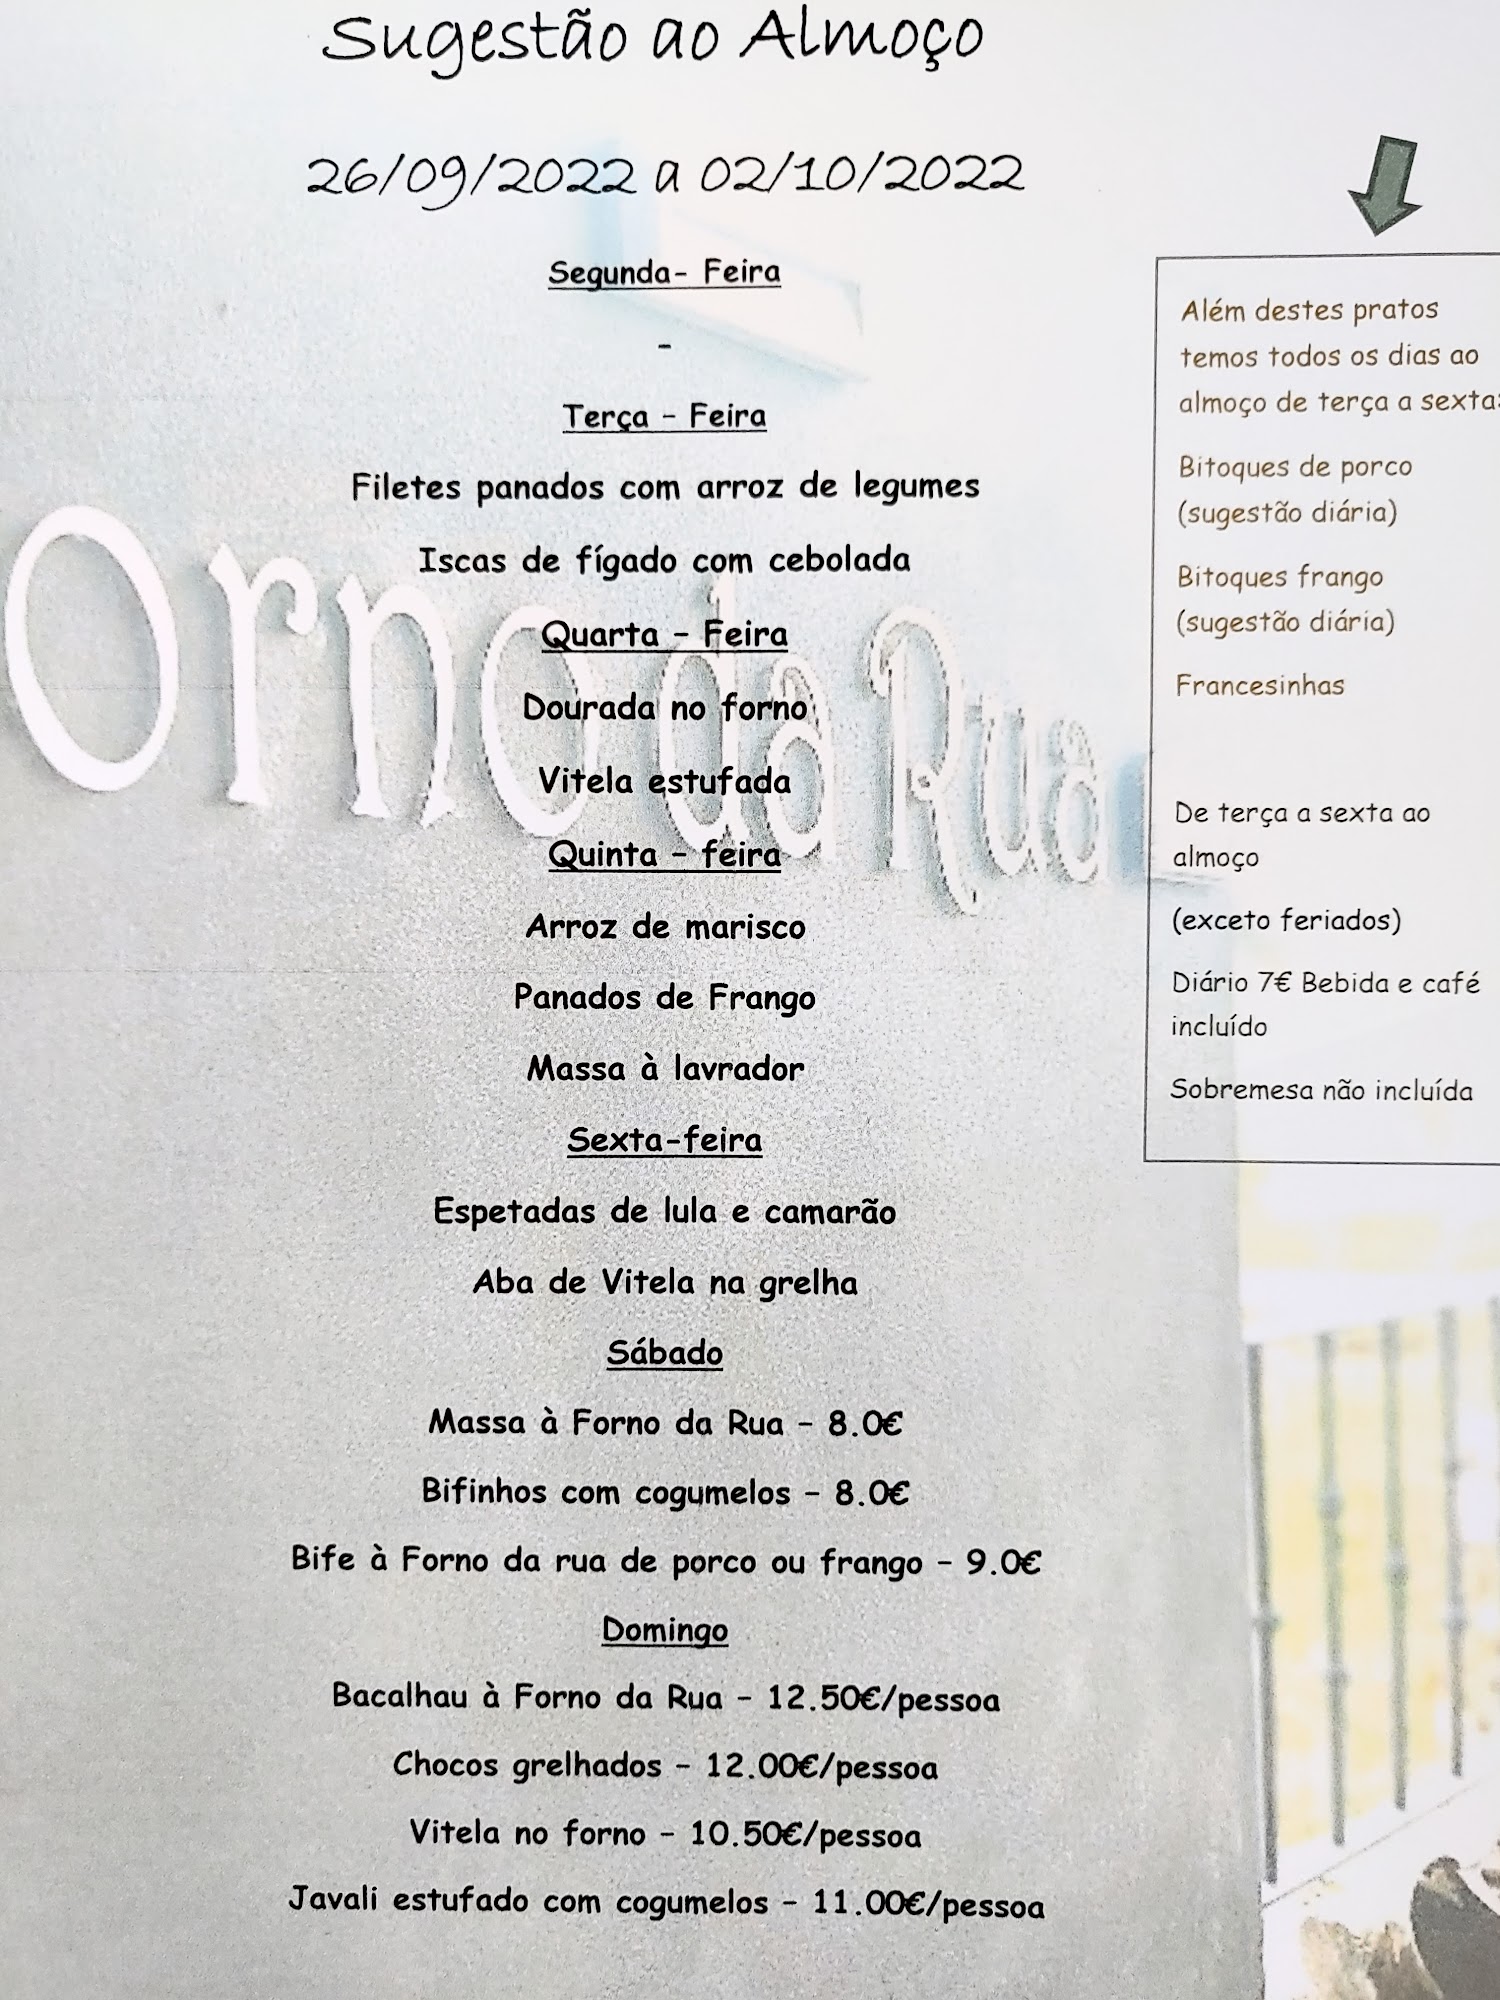 Sugestão ao Almoço
26/09/2022 a 02/10/2022
Segunda- Feira
-
Terça - Feira
Filetes panados com arroz de legumes
Iscas de fígado com cebolada
Quarta - Feira
Dourada no forno
Vitela estufada
Quinta - feira
Arroz de marisco
Panados de Frango
Massa à lavrador
Sexta-feira
Espetadas de lula e camarão
Aba de Vitela na grelha
Sábado
Massa à Forno da Rua - 8.0€
Bifinhos com cogumelos - 8.0€
Bife à Forno da rua de porco ou frango - 9.0€
Domingo
Bacalhau à Forno da Rua - 12.50€/pessoa
Chocos grelhados - 12.00€/pessoa
Vitela no forno - 10.50€/pessoa
Javali estufado com cogumelos - 11.00€/pessoa
Além destes pratos
temos todos os dias ao
almoço de terça a sexta:
Bitoques de porco
(sugestão diária)
Bitoques frango
(sugestão diária)
Francesinhas
De terça a sexta ao
almoço
(exceto feriados)
Diário 7€ Bebida e café
incluído
Sobremesa não incluída
orno da Rua